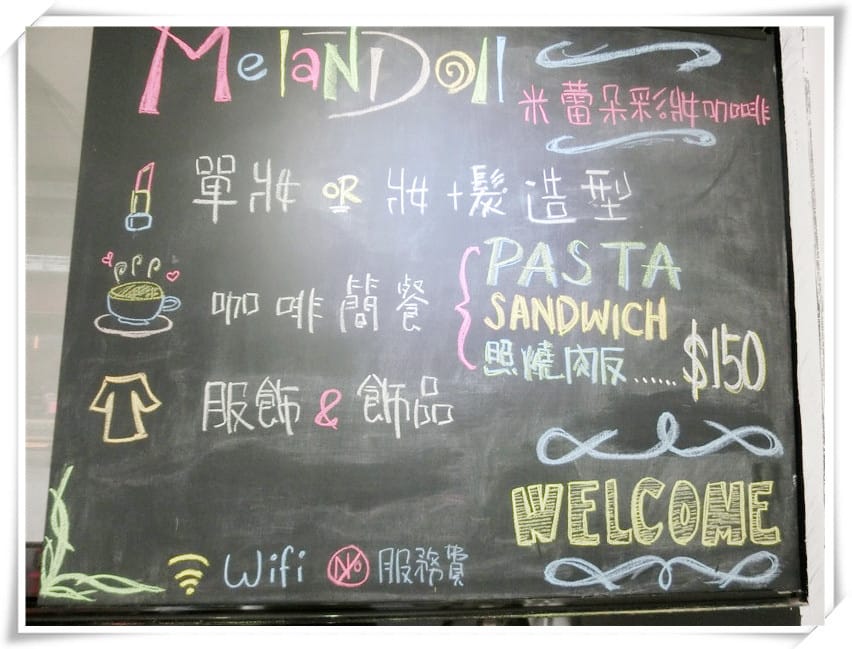 MelanDoll
米蕾朵彩妝咖啡
單妝 OR 妝+髮造型
咖啡簡餐
PASTA
SANDWICH
照燒肉飯......$150
服飾 & 飾品
WELCOME
Wifi No 服務費